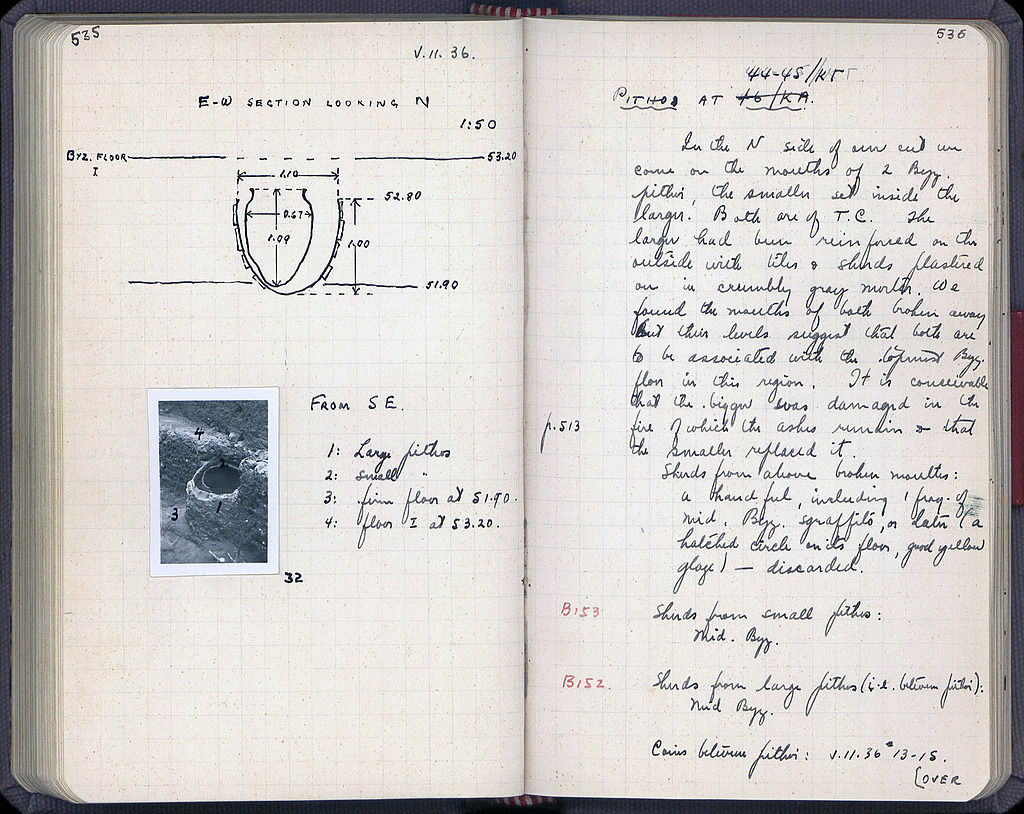 535
V.11.36.
E-W SECTION LOOKING N
1:50
BYZ. FLOOR
I
53.20
1.10
52.80
0.67
1.09
1.00
51.90
FROM S E.
1: Large pithos
2: small "
3: firm floor at 51.90.
4: floor I at 53.20.
4
2
1
3
32
536
44-45/KT
PITHOS AT 46/KA.
In the N side of our cut we
come on the mouths of 2 Byz.
pithoi, the smaller set inside the
larger. Both are of T.C. The
larger had been reinforced on the
outside with tiles & sherds plastered
on in crumbly gray mortar. We
found the mouths of both broken away
but their levels suggest that both are
to be associated with the topmost Byz.
floor in this region. It is conceivable
that the bigger was damaged in the
p.513
fire of which the ashes remain & that
the smaller replaced it.
Sherds from above broken mouths:
a handful, including 1 frag. of
Mid. Byz. sgraffito, or later (a
hatched circle on its floor, good yellow
glaze) — discarded.
B153
Sherds from small pithos:
Mid. Byz.
B152.
Sherds from large pithos (i.e. between pithoi):
Mid Byz.
Coins between pithoi: V.11.36 # 13-15.
[OVER